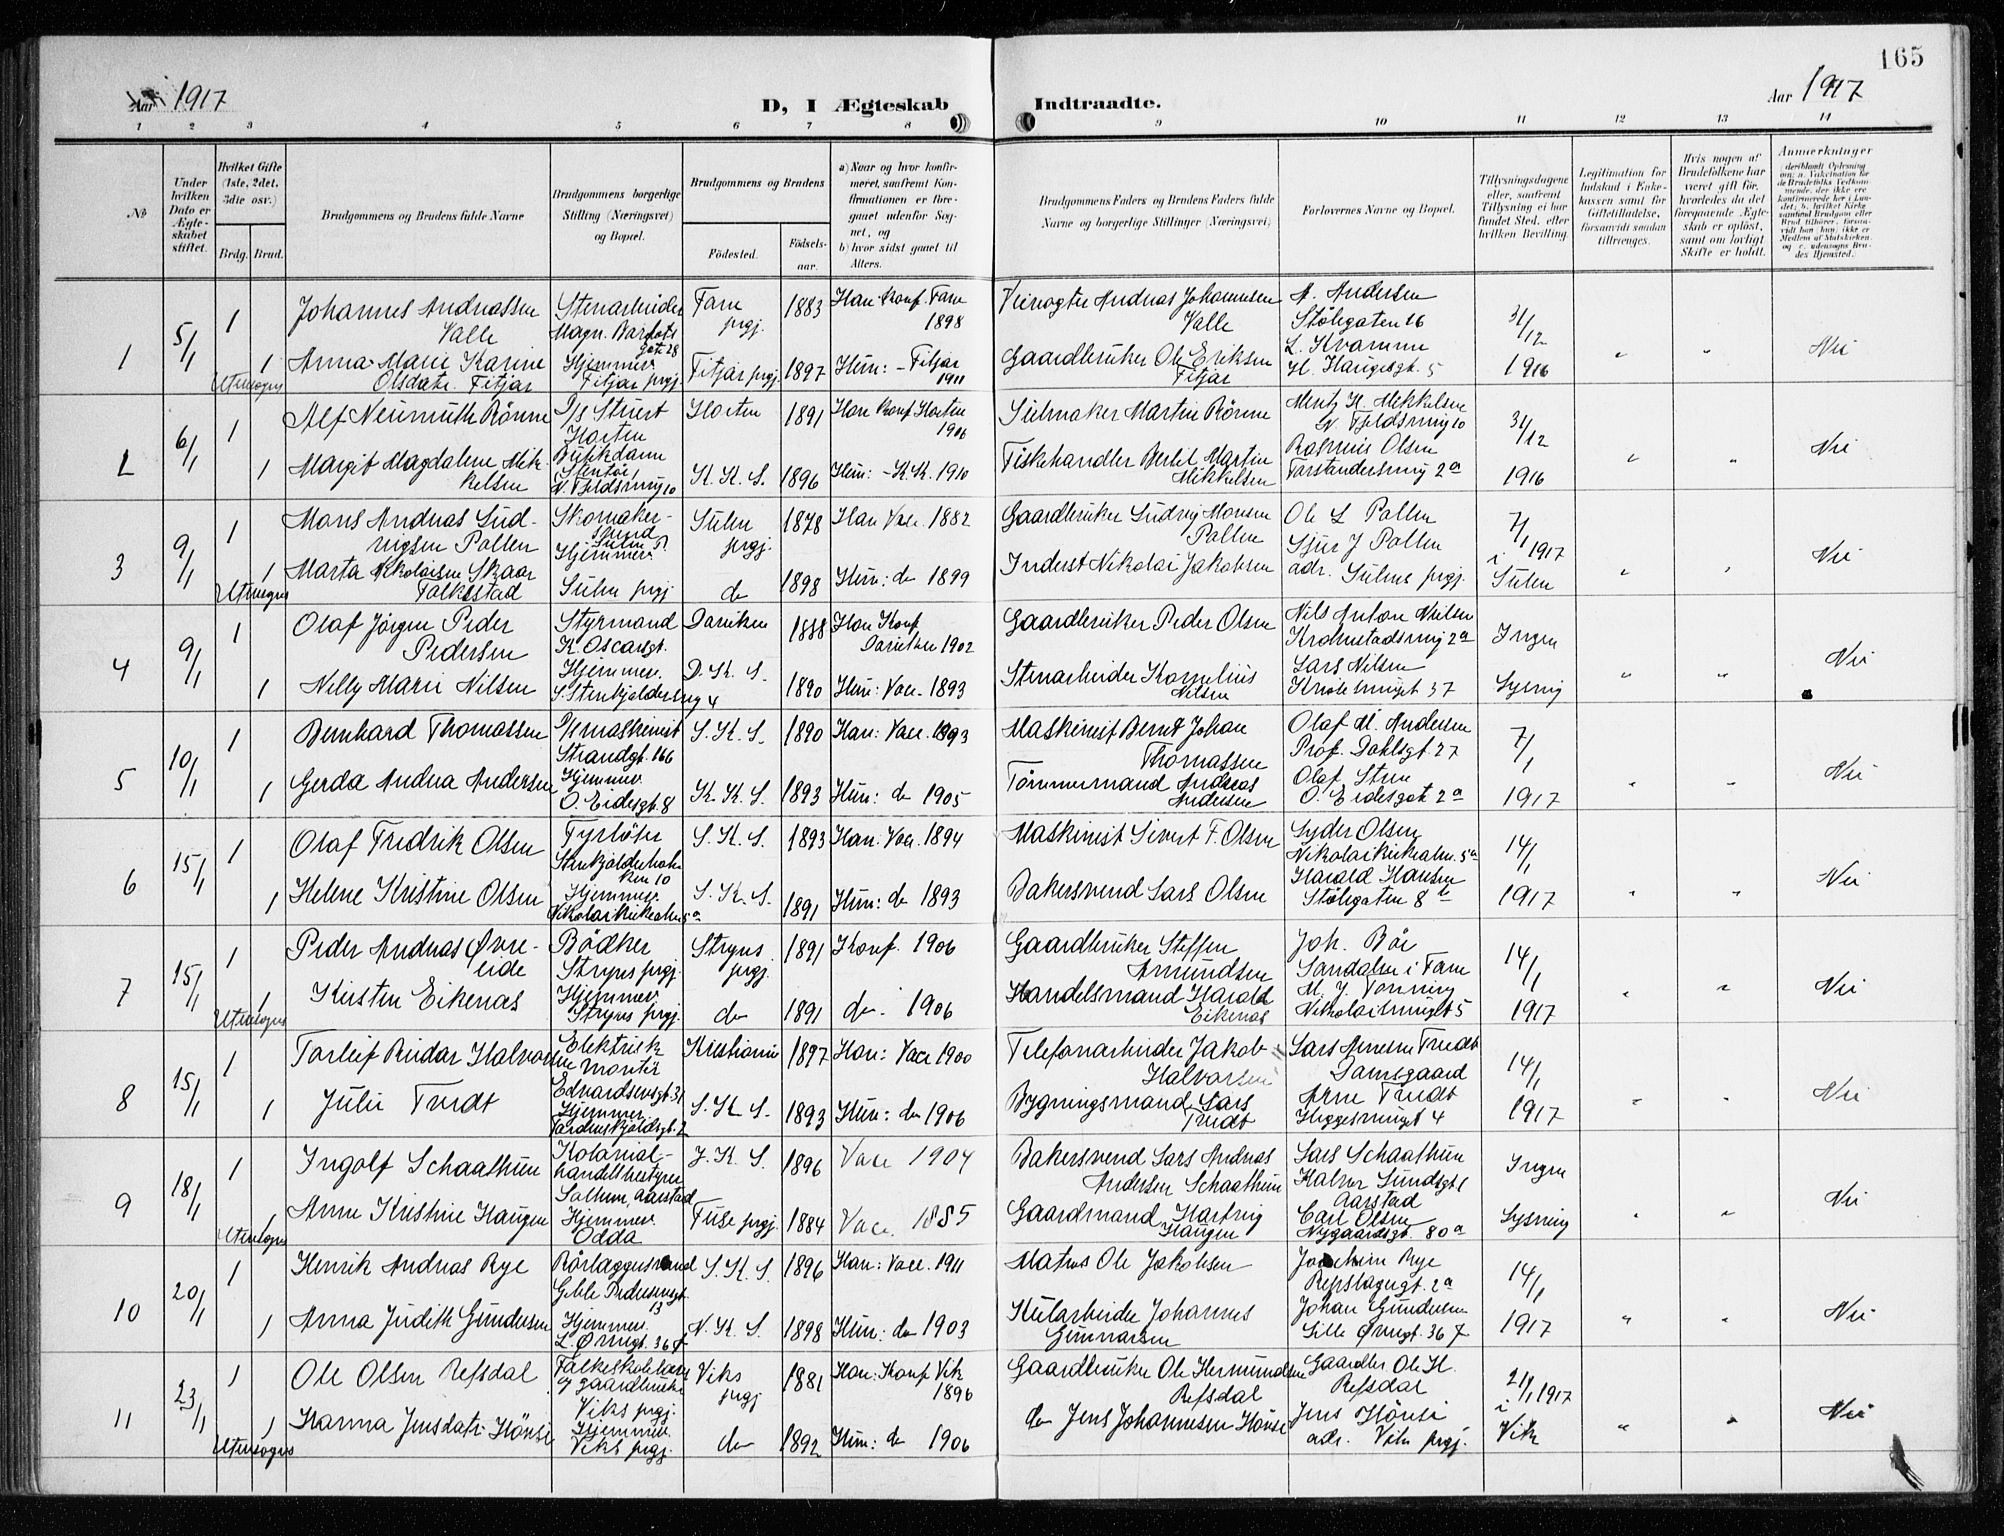 165
Aar 1917
D, I Ægteskab Indtraadte.
Aar 1917
1 2 3 4 5 6 7 8 9 10 11 12 13 14
No
Under hvilken Dato er Ægteskabet stiftet.
Hvilket Gifte (1ste, 2det, 3die osv.)
Brdg. Brud.
Brudgommens og Brudens fulde Navne
Brudgommens borgerlige Stilling (Næringsvei) og Bopæl.
Brudgommens og Brudens
Fødested. Fødselsaar.
a) Naar og hvor konfirmeret, samfremt Konfirmationen er foregaaet udenfor Sognet, og
b) hvor sidst gaaet til Alters.
Brudgommens Faders og Brudens Faders fulde Navne og borgerlige Stillinger (Næringsvei)
Forlovernes Navne og Bopæl.
Tillysningsdagene eller, saafremt Tillysning ei har fundet Sted, efter hvilken Bevilling
Legitimation for Indskud i Enkekassen samt for Giftetilladelse, forsaavidt saadan tiltrænges.
Hvis nogen af Brudefolkene har været gift før, hvorledes da det foregaaende Ægteskab er opløst, samt om lovligt Skifte er holdt.
Anmærkninger
1
5/1
1
Johannes Andreassen Valle
Stenarbeider
Farn prgj. 1883
Han: Konf. Farn 1898
Andreas Johannesen Valle
A. Andersen
Stølegaten 16
31/12
1
Utensogns
Anna Marie Karine Olsdatr. Fitjar
Hjemmev.
Fitjar prgj.
Fitjar prgj. 1897
Hun: - Fitjar 1911
Gaardbruker Ole Eriksen Fitjar
L. Kvamme
H. Haugesgt. 5
1916
" " Nei
2
6/1
1
Alf Neumuth Rönne
Horten
Horten 1891
Han Konf Horten 1906
Seilmaker Martin Rönne
Mentz H. Mikkelsen
N. Fjeldsmug 10
31/12
1
Margit Magdalene Mikkelsen
Butikdame
N. Fjeldsmug 10
K. K. S. 1896
Hun: - K.K. 1910
Fiskehandler Bertel Martin Mikkelsen
Rasmus Olsen
Forstandersmug 2a
1916
" " Nei
3
9/1
1
Mons Andreas Ludvigsen Pollen
Skomakersvend
Sulen P.
Sulen prgj. 1878
Han Vacc. 1882
Gaardbruker Ludvig Monsen Pollen
Ole L Pollen
Sjur J Pollen
7/1 1917
1
Utensogns
Marta Nikolaisen Skaar Folkestad
Hjemmev.
Sulen prgj
do 1898
Hun: do 1899
Inderst Nikolai Jakobsen
adr. Sulens prgj.
i Sulen
" " Nei
4
9/1
1
Olaf Jörgen Peder Pedersen
Styrmand
K. Oscarsgt.
Daviken 1888
Han Konf Daviken 1902
Gaardbruker Peder Olsen
Nils Anton Nielsen
Krohnstadsmug 2a
Ingen
1
Nelly Marie Nilsen
Hjemmev.
S. Stenkjeldersmug 4
D. K. S. 1890
Hun: Vacc. 1893
Stenarbeider Kornelius Nilsen
Lars Nilsen
37
Lysnig
" " Nei
5
10/1
1
Bernhard Thomassen
Strandgt. 166
S. K. S. 1890
Han: Vacc. 1893
Maskinist Bernt Johan Thomassen
Olaf M. Andersen
Prof. Dahlsgt. 27
7/1
1
Gerda Andrea Andersen
Hjemmev.
O. Eidesgt. 8
K. K. S. 1893
Hun: do 1905
Tömmermand Andreas Andersen
Olaf Sten
O. Eidesgate 2a
1917
" " Nei
6
15/1
1
Olaf Fredrik Olsen
Fyrböter
Stenkjelderbakken 10
S. K. S. 1893
Han: Vacc. 1894
Maskinist Sivert F. Olsen
Syder Olsen
Nikolaikirkealm. 5a
14/1
1
Helene Kristine Olsen
Hjemmev.
Nikolaikirkealm 5a
S. K. S. 1891
Hun: do 1893
Bakersvend Lars Olsen
Harald Hansen
Stölegaten 8e
1917
" " Nei
7
15/1
1
Peder Andreas Øvreeide
Bödker
Stryns prgj.
Stryns prgj. 1891
Konf. 1906
Gaardbruker Steffen Amundsen
Joh. Böe
Sandalen i Fane
14/1
1
Utensogns
Kirsten Eikenæs
Hjemmev.
Stryns prgj.
do 1891
do. 1906
Handelsmand Harald Eikenæs
M. J. Tonning
Nikolaismuget 5
1917
" " Nei
8
15/1
1
Torleif Reidar Halvorsen
Elektrisk montör
Edvardsensgt. 31
Kristiania 1897
Han: Vacc 1900
Telefonarbeider Jakob Halvorsen
Lars Arnesen Tvedt
Damsgaard
14/1
1
Julie Tvedt
Hjemmev.
Tordenskjoldsgt. 2
S. K. S. 1893
Hun: do 1906
Bygningsmand Lars Tvedt
Arne Tvedt
Heggesmuget 4
1917
" " Nei
9
18/1
1
Ingolf Schaathun
Kolonialhandelbestyrer
Solheim, Aarstad
J. K. S. 1896
Vacc 1904
Bakersvend Lars Andreas Andersen Schaathun
Lars Schaathun
Halvor Sundsgt
Aarstad
Ingen
1
Utensogns
Anne Kristine Haugen
Hjemmev.
Odda
Fuse prgj. 1884
Vacc. 1885
Gaardmand Hartvig Haugen
Carl Olsen
Nygaardsgt. 80a
Lysning
" " Nei
10
20/1
1
Henrik Andreas Rye
Rörlæggersvend
Geble Pedersensgt. 13
S. K. S. 1896
Han: Vacc. 1911
Matros Ole Jakobsen
Joachim Rye
Repslagergt. 2a
14/1
1
Anna Judith Gundersen
Hjemmev.
L. Øvregt. 36 f
N. K. S. 1898
Hun: do 1903
Kularbeider Johannes Gunnarsen
Johan Gundersen
Lille Øvregt. 36 f
1917
" " Nei
11
23/1
1
Ole Olsen Refsdal
Folkeskolelærer og gaardbruker
Viks prgj.
Viks prgj 1881
Han: Konf Vik 1896
Gaardbruker Ole Hermundsen Refsdal
Gaardbr Ole H. Refsdal
21/1 1917
1
Utensogns
Hanna Jensdatr. Hönsi
Hjemmev.
Viks prgj.
do 1892
Hun: do 1906
do Jens Johannesen Hönsi
Jens Hönsi
adr. Viks prgj.
i Vik
" " Nei